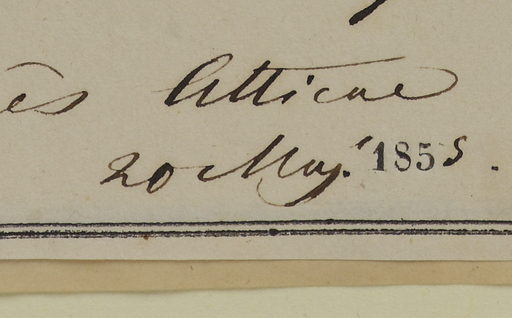 ès Atticae
20 Maj. 1855.